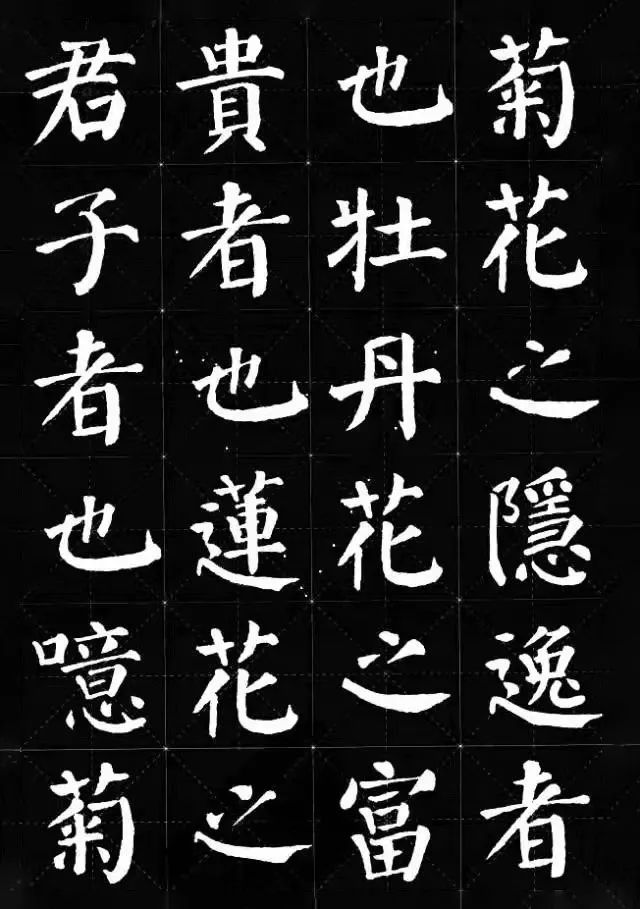 菊花之隱逸者
也牡丹花之富
貴者也蓮花之
君子者也噫菊